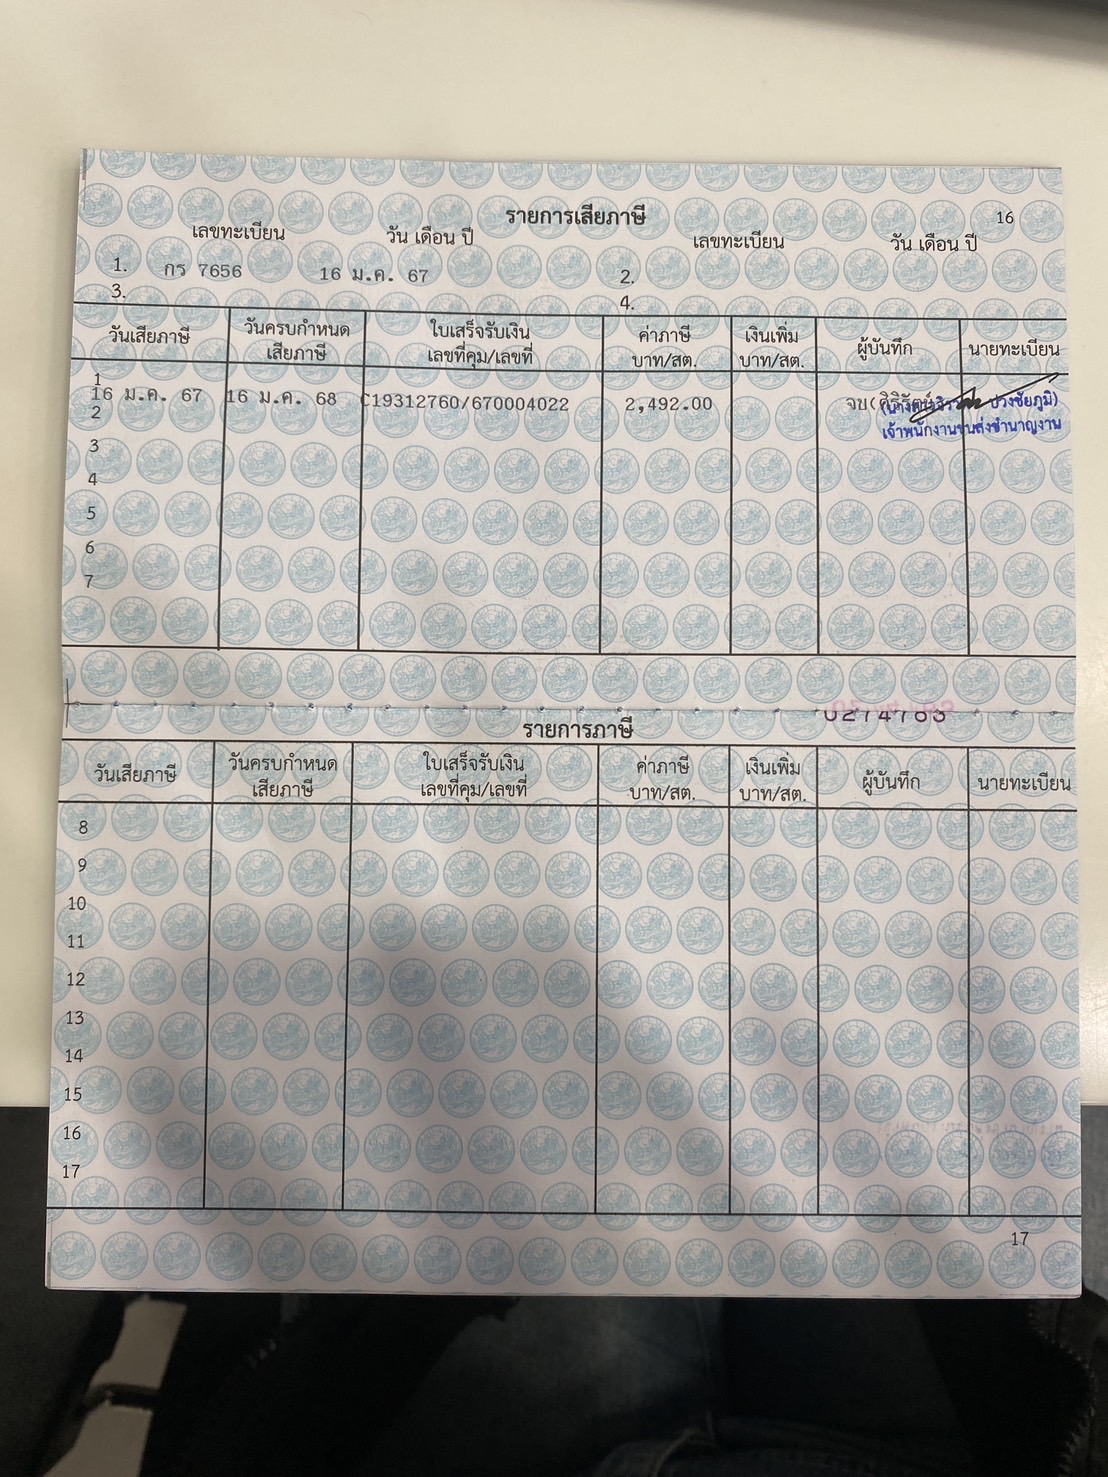 16
รายการเสียภาษี
เลขทะเบียน วัน เดือน ปี เลขทะเบียน วัน เดือน ปี
1. กร 7656 16 ม.ค. 67 2.
3. 4.
วันเสียภาษี วันครบกำหนด เสียภาษี ใบเสร็จรับเงิน เลขที่คุม/เลขที่ ค่าภาษี บาท/สต. เงินเพิ่ม บาท/สต. ผู้บันทึก นายทะเบียน
1
16 ม.ค. 67 16 ม.ค. 68 C19312760/670004022 2,492.00 จบ(
เจ้าพนักงานขนส่งชำนาญงาน
2
3
4
5
6
7
รายการภาษี
วันเสียภาษี วันครบกำหนด เสียภาษี ใบเสร็จรับเงิน เลขที่คุม/เลขที่ ค่าภาษี บาท/สต. เงินเพิ่ม บาท/สต. ผู้บันทึก นายทะเบียน
8
9
10
11
12
13
14
15
16
17
17